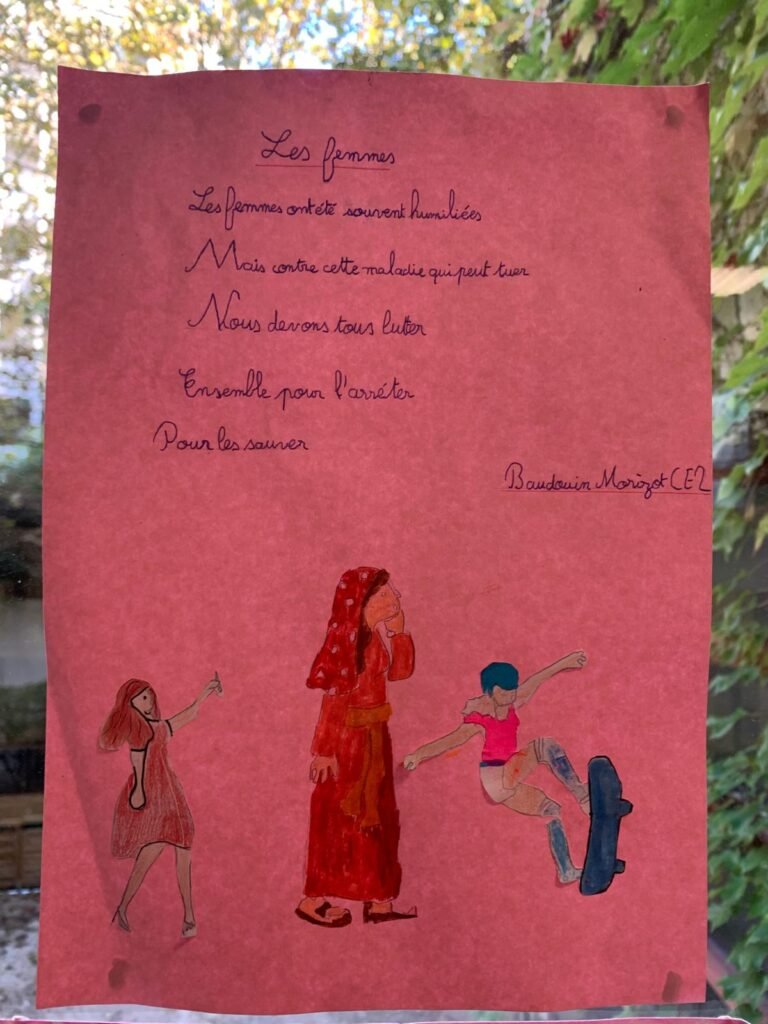 Les femmes
Les femmes ont été souvent humiliées
Mais contre cette maladie qui peut tuer
Nous devons tous lutter
Ensemble pour l'arréter
Pour les sauver
Baudouin Marizot CE2